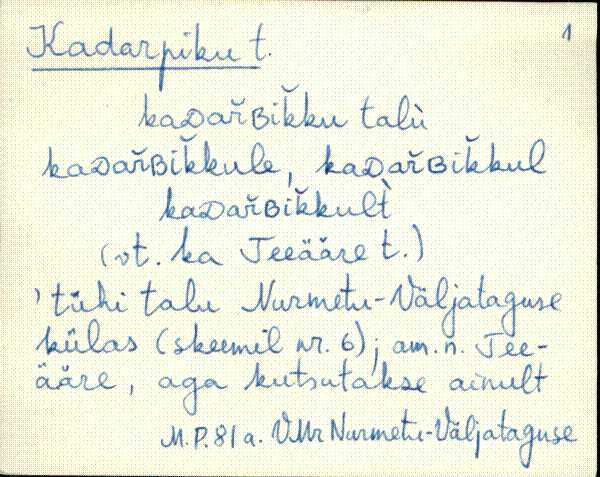 Kadarpiku t. 1
kaDař̆Bik̆ku talù
kaDař̆Bik̆kule, kaDař̆Bik̆kul
kaDař̆Bik̆kul̀t
(vt. ka Teeääre t.)
’tühi talu Nurmetu-Väljataguse
külas (skeemil nr. 6); am. n. Tee-
ääre, aga kutsutakse ainult
M.P. 81 a. VMr Nurmetu-Väljataguse